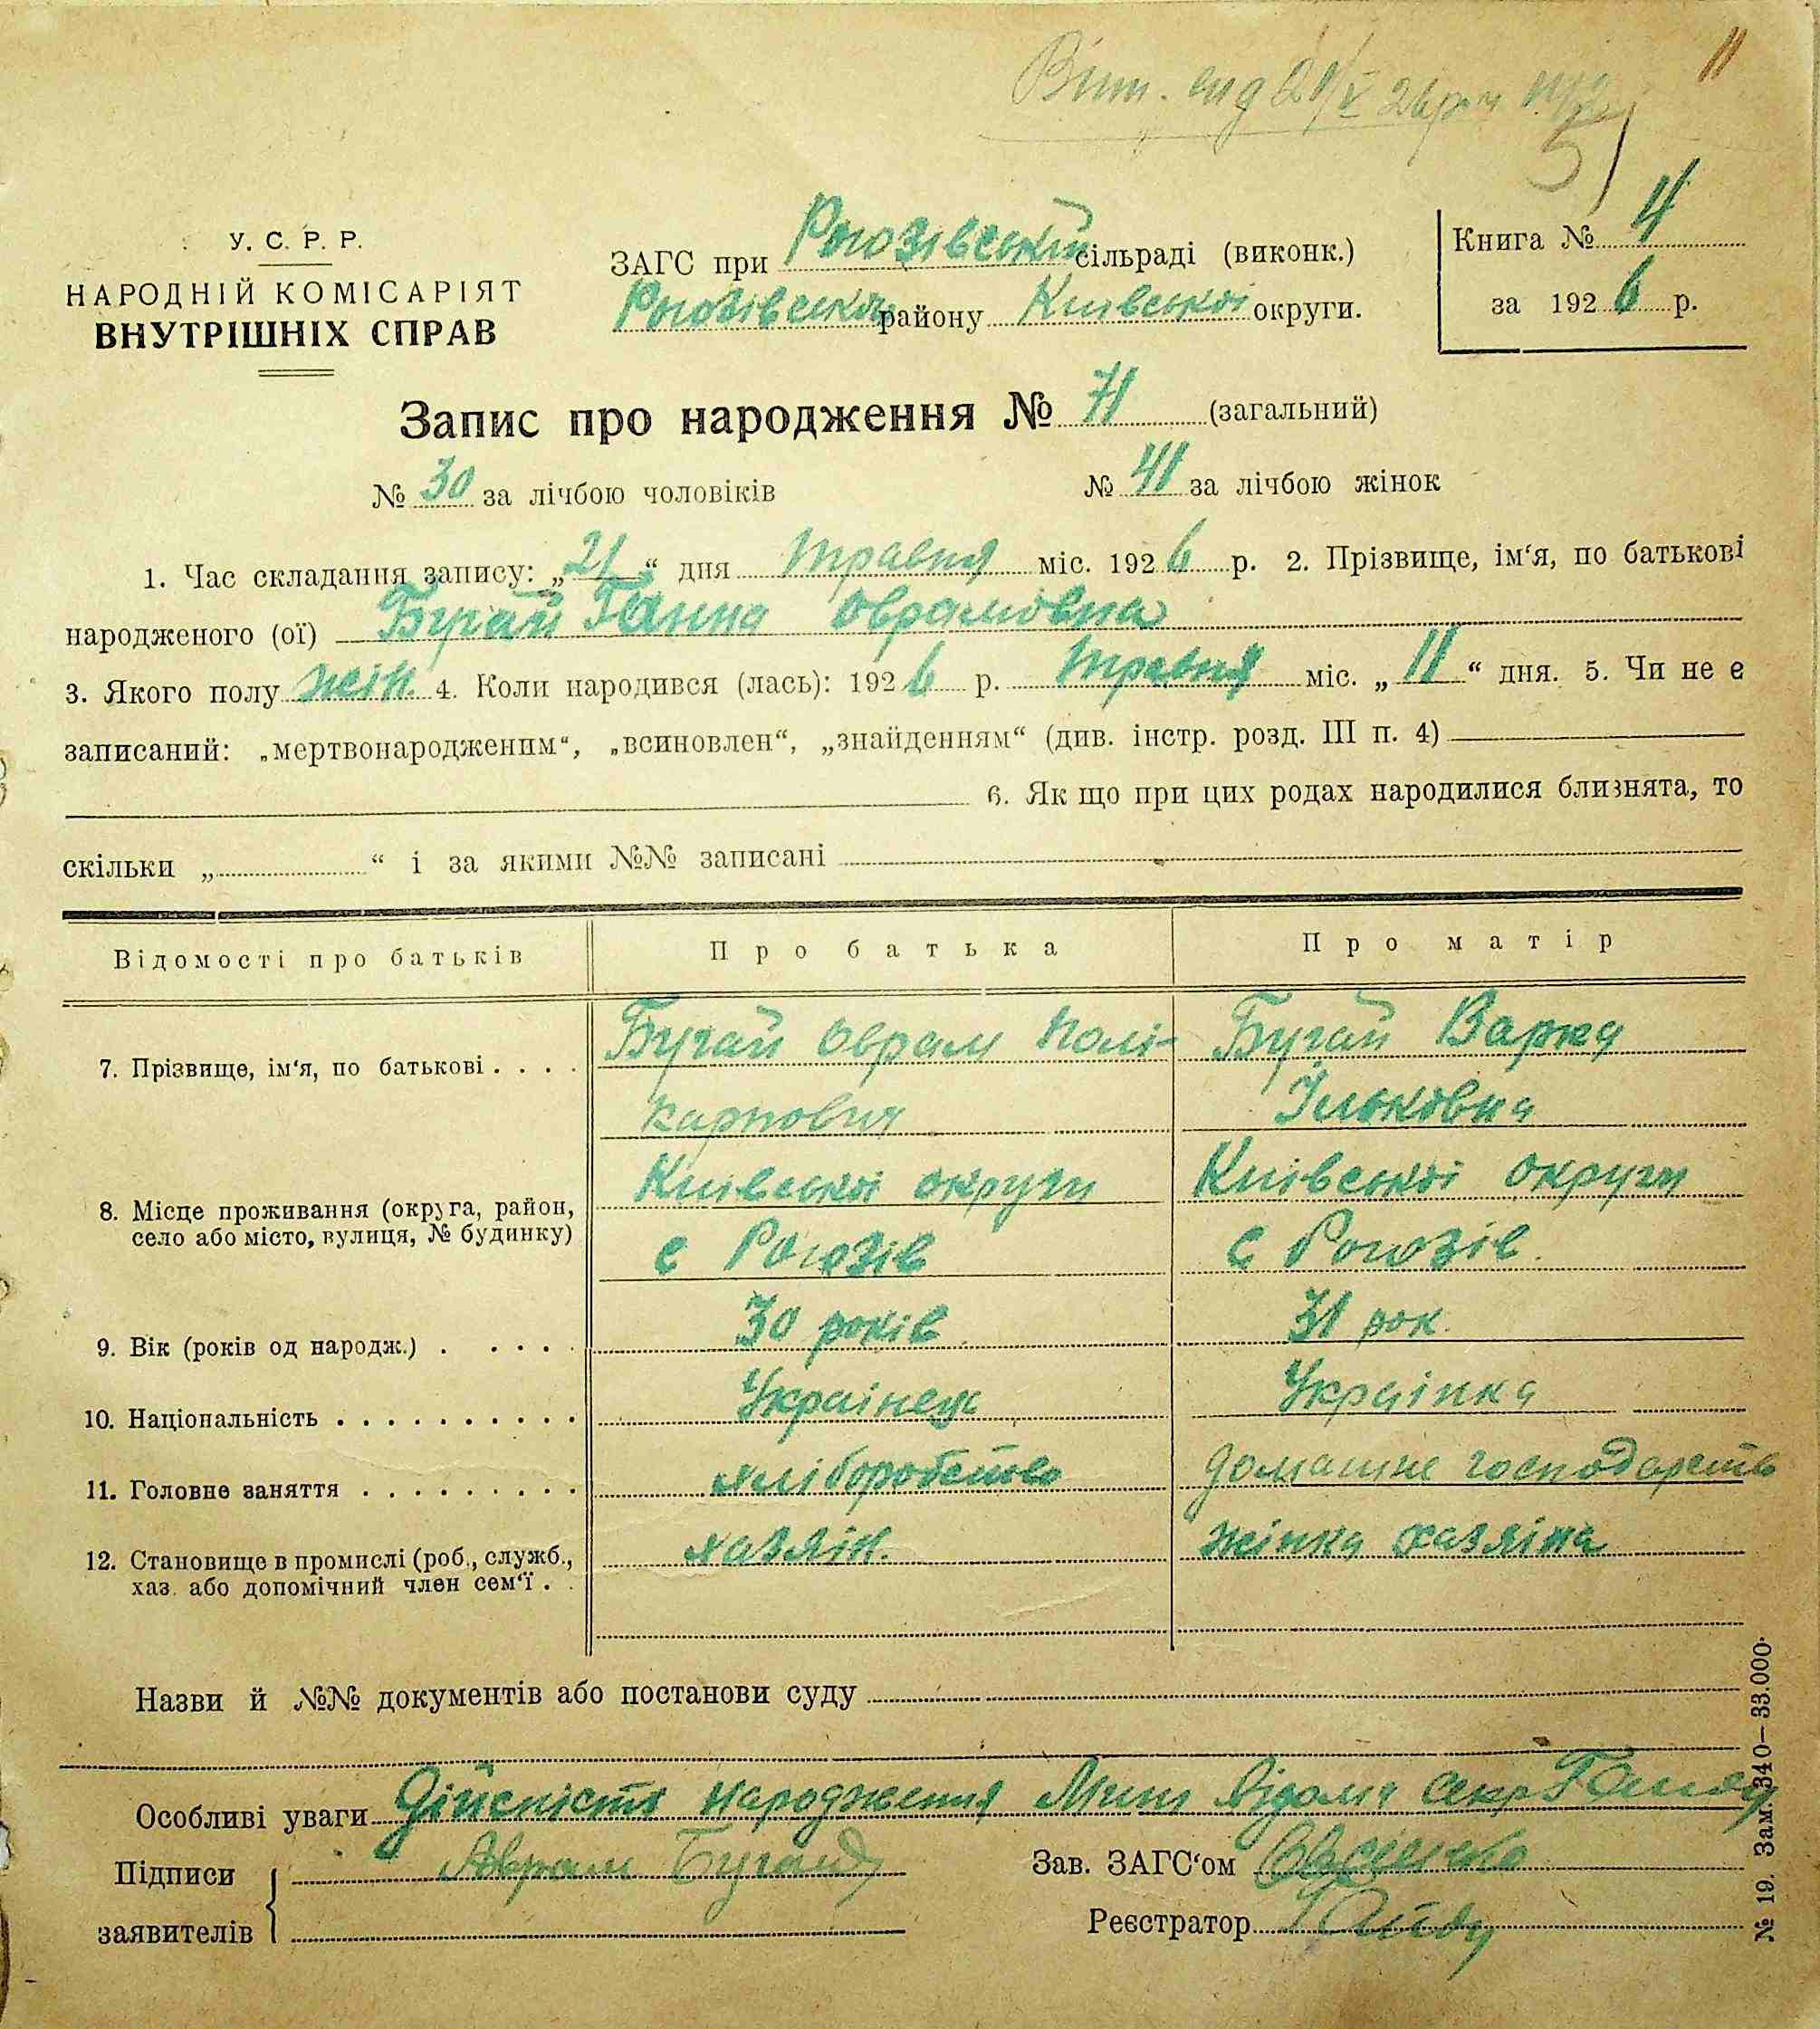 11
51
У. С. Р. Р.
НАРОДНІЙ КОМІСАРІЯТ
ВНУТРІШНІХ СПРАВ
ЗАГС при Рогозівській сільраді (виконк.)
Рогозівська району Київської округи.
Книга № 4
за 1926 р.
Запис про народження № 71 (загальний)
№ 30 за лічбою чоловіків № 41 за лічбою жінок
1. Час складання запису: „21“ дня травня міс. 1926 р. 2. Прізвище, ім‘я, по батькові
народженого (ої) Бугай Ганна Оврамовна
3. Якого полу жін. 4. Коли народився (лась): 1926 р. травня міс. „11“ дня. 5. Чи не є
записаний: „мертвонародженим“, „всиновлен“, „знайденням“ (див. інстр. розд. III п. 4)
6. Як що при цих родах народилися близнята, то
скільки „ “ і за якими №№ записані
Відомості про батьків Про батька Про матір
7. Прізвище, ім‘я, по батькові . . . . Бугай Оврам Полі- Бугай Варка
карпович Ільковна
8. Місце проживання (округа, район, Київської округи Київської округи
село або місто, вулиця, № будинку) с Рогозів с Рогозів.
9. Вік (років од народж.) . . . . . 30 років 31 рок.
10. Національність . . . . . . . . . . . Українець Українка
11. Головне заняття . . . . . . . . . хліборобство домашнє господарств
12. Становище в промислі (роб., служб., хазяїн. жінка хазяїна
хаз. або допомічний член сем‘ї . .
Назви й №№ документів або постанови суду
Особливі уваги Дійсність народження Мині відома секр
Підписи Аврам Бугай Зав. ЗАГС‘ом
заявителів Реєстратор
№ 19. Зам. 340—33.000.